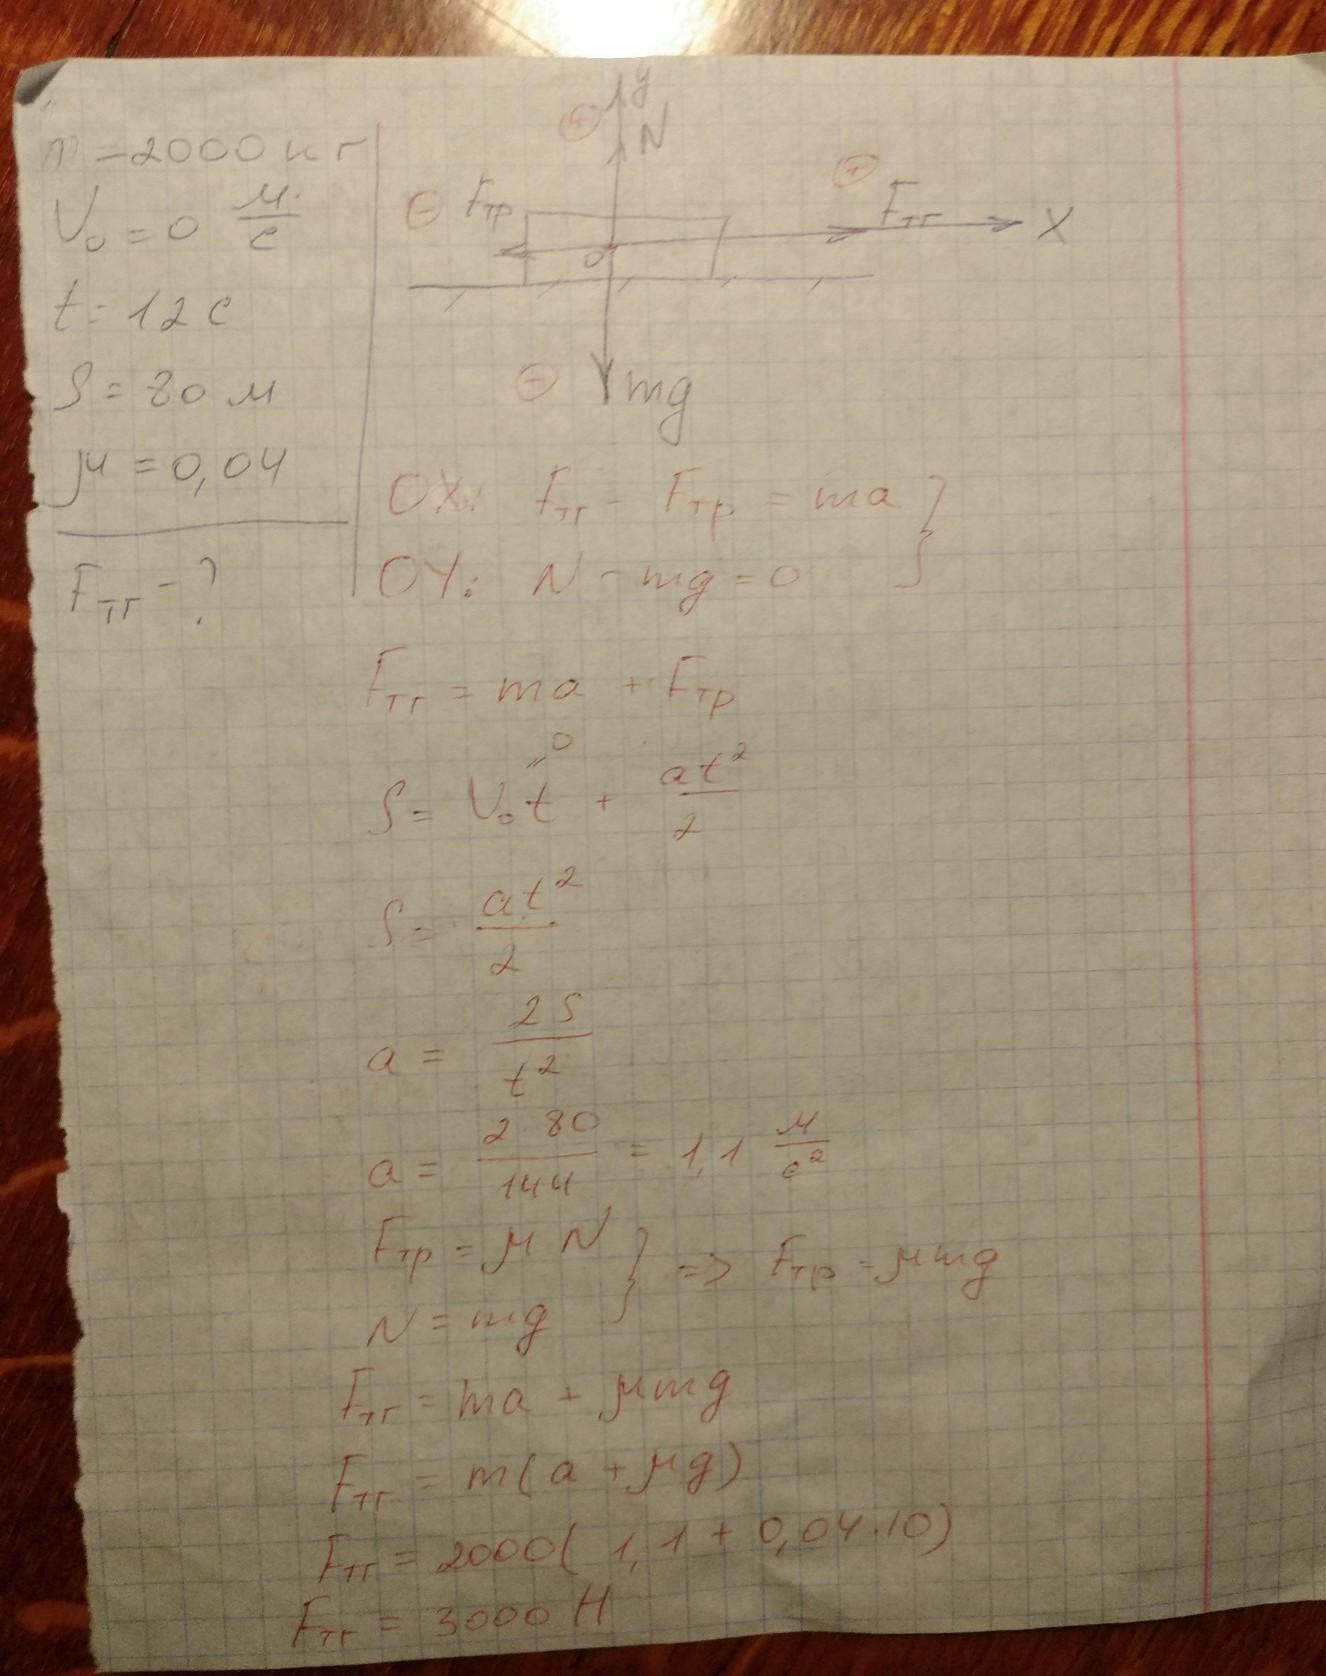 m = 2000 кг
V₀ = 0 м/с
t = 12 с
S = 80 м
μ = 0,04
Fтг - ?
y
+ N
- Fтр + Fтг X
0
- mg
OX: Fтг - Fтр = ma }
OY: N - mg = 0
Fтг = ma + Fтр
= 0
S = V₀t + at²/2
S = at²/2
a = 2S/t²
a = 2·80/144 = 1,1 м/с²
Fтр = μN } => Fтр = μmg
N = mg
Fтг = ma + μmg
Fтг = m(a + μg)
Fтг = 2000(1,1 + 0,04·10)
Fтг = 3000 Н